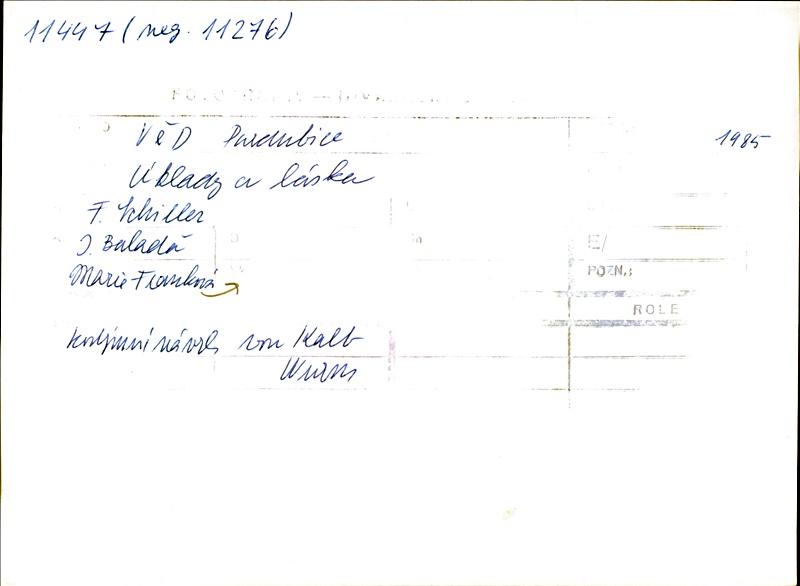 11447 (neg. 11276)
VČD Pardubice
1985
Úklady a láska
F. Schiller
J. Baladá
E/
Marie Franková
POZN.:
ROLE
kostýmní návrh von Kalb
Wurm